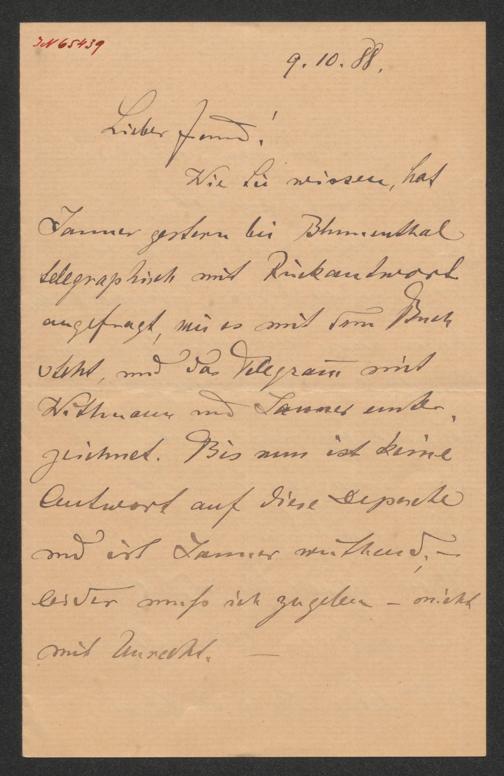 IN 65439
9. 10. 88.
Lieber Freund!
Wie Sie wissen, hat
Janner gestern bei Blumenthal
telegraphisch mit Rückantwort
angefragt, wie es mit dem Buch
steht, und das Telegram̅ mit
Wittmann und Janner unter-
zeichnet. Bis nun ist keine
Antwort auf diese Depesche
und ist Janner wüthend, –
leider muß ich zugeben – nicht
mit Unrecht. —